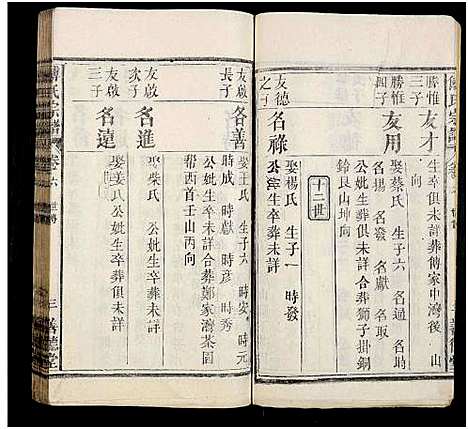 勝惟
三子
友才
生卒俱未詳葬傅家中灣後山
向
勝惟
四子
友用
娶蔡氏 生子六 名通
名揚 名發 名獻 名取
公妣生卒葬俱未詳獅子掛銅
鈴艮山坤向
十二世
友德
之子
名祿
娶楊氏 生子一 時發
公妣生卒葬未詳
友啟
長子
名善
娶王氏 生子 時安 時元
時成 時獻 時彥 時秀
公妣生卒未詳合葬鄭家灣茶園
帮酉首壬山丙向
友啟
次子
名進
娶柴氏 公妣生卒葬俱未詳
友啟
三子
名遠
娶姜氏 公妣生卒葬俱未詳
傅氏宗譜 卷六 世傳 三 善德堂